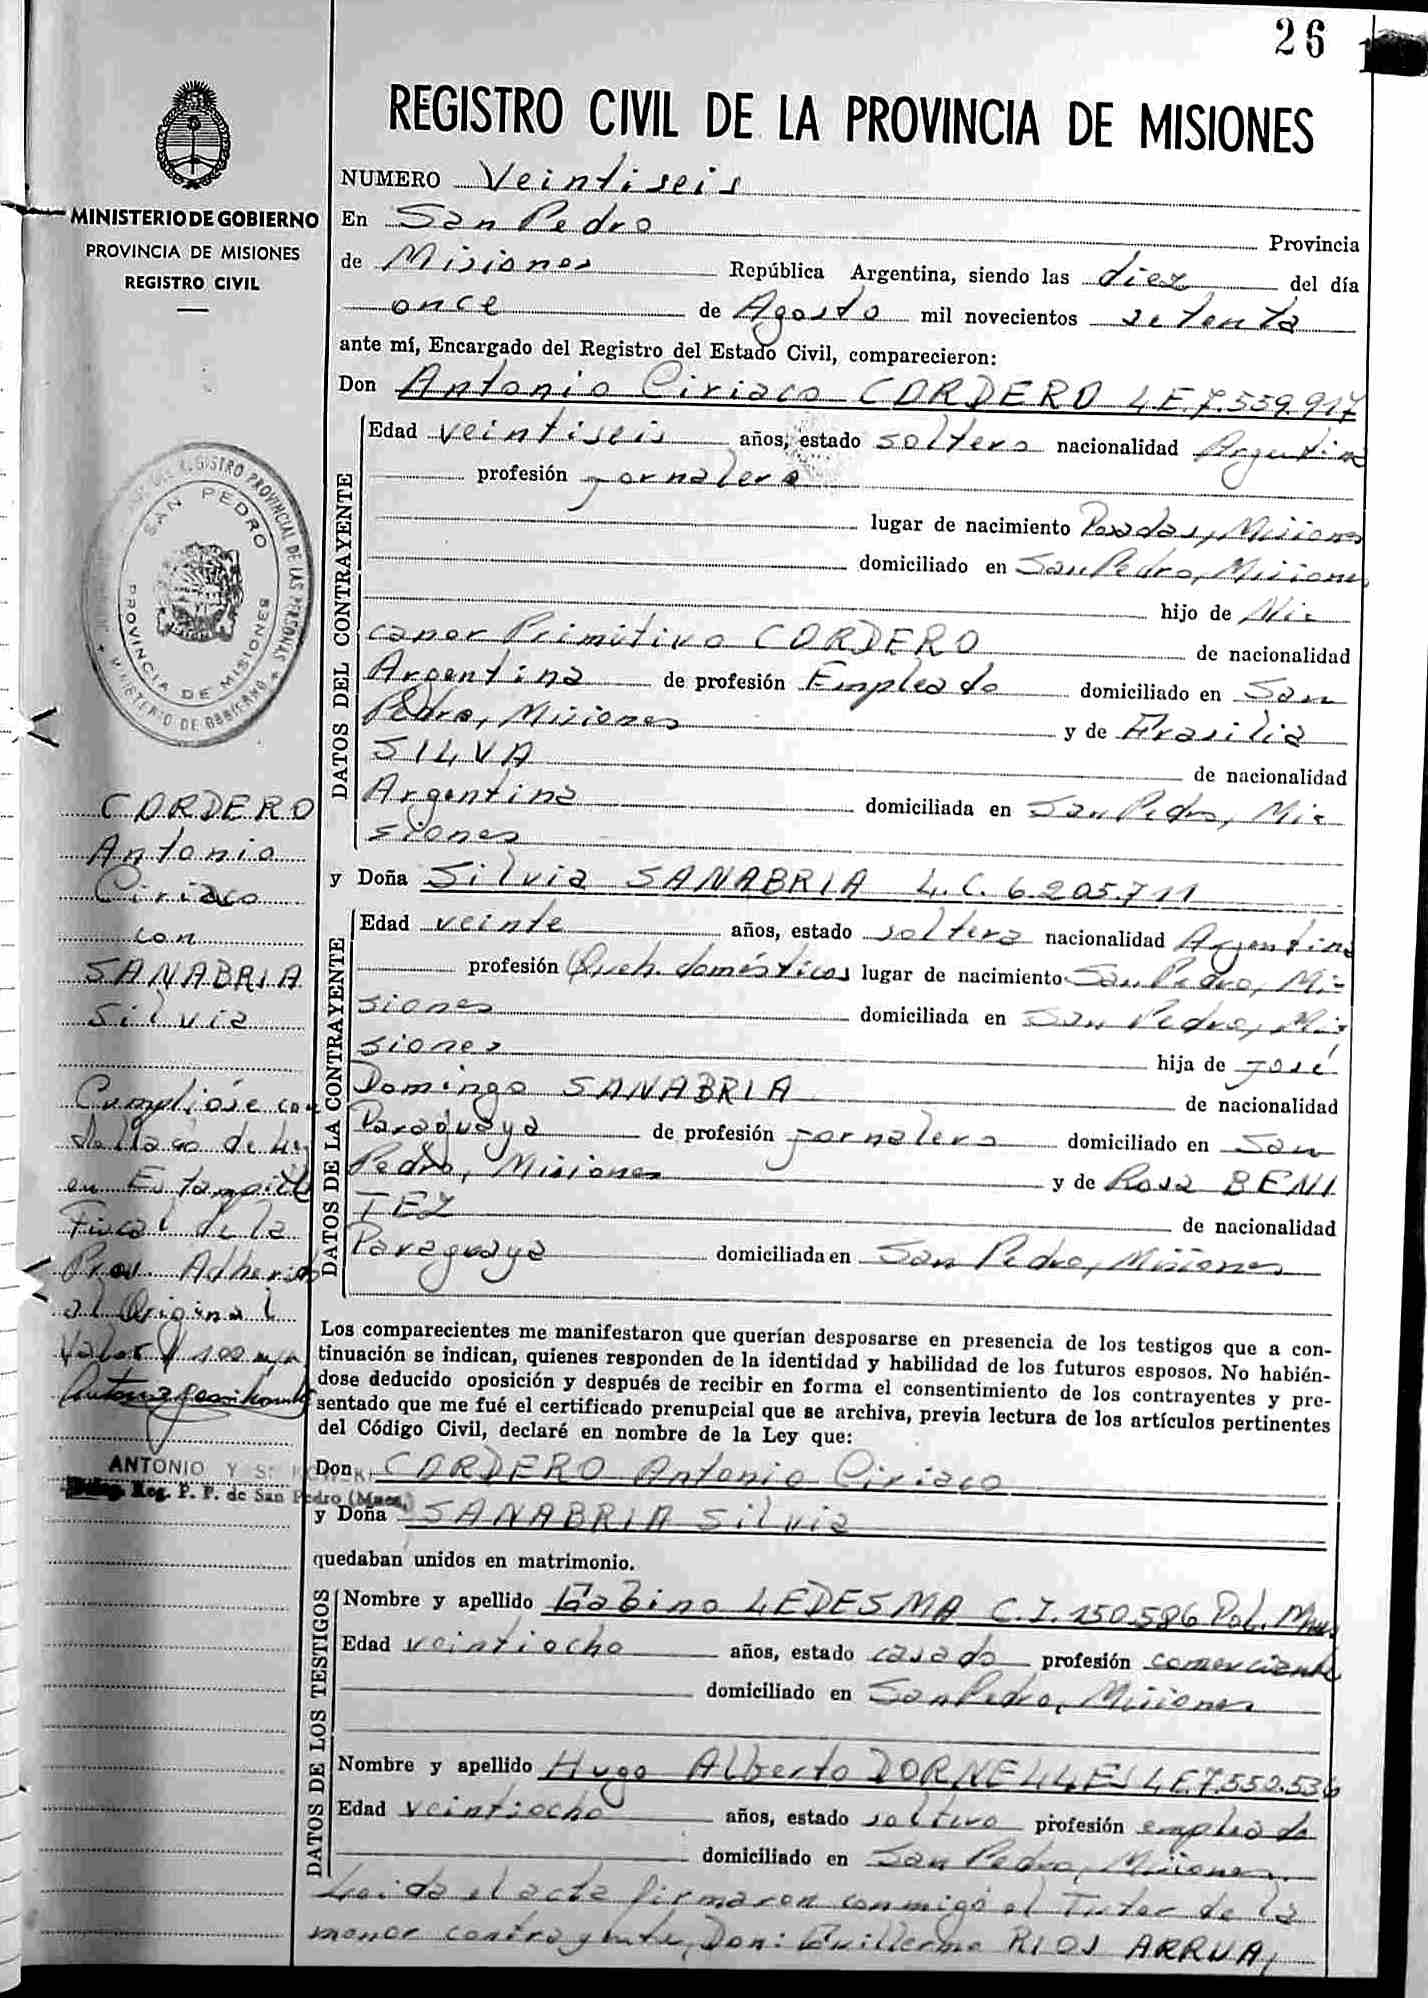 26
REGISTRO CIVIL DE LA PROVINCIA DE MISIONES
MINISTERIO DE GOBIERNO
PROVINCIA DE MISIONES
REGISTRO CIVIL
NUMERO Veintiseis
En San Pedro Provincia
de Misiones República Argentina, siendo las diez del día
once de Agosto mil novecientos setenta
ante mí, Encargado del Registro del Estado Civil, comparecieron:
Don Antonio Ciriaco CORDERO L.E.7.559.917
DATOS DEL CONTRAYENTE
Edad veintiseis años, estado soltero nacionalidad Argentina
profesión jornalero
lugar de nacimiento Posadas, Misiones
domiciliado en San Pedro, Misiones
hijo de Ni-
canor Primitivo CORDERO de nacionalidad
Argentina de profesión Empleado domiciliado en San
Pedro, Misiones y de Brasilia
SILVA de nacionalidad
Argentina domiciliada en San Pedro, Mi-
siones
y Doña Silvia SANABRIA L.C. 6.205.711
DATOS DE LA CONTRAYENTE
Edad veinte años, estado soltera nacionalidad Argentina
profesión Queh. domésticos lugar de nacimiento San Pedro, Mi-
siones domiciliada en San Pedro, Mi-
siones hija de José
Domingo SANABRIA de nacionalidad
Paraguaya de profesión jornalero domiciliado en San
Pedro, Misiones y de Rosa BENI
TEZ de nacionalidad
Paraguaya domiciliada en San Pedro, Misiones
Los comparecientes me manifestaron que querían desposarse en presencia de los testigos que a con-
tinuación se indican, quienes responden de la identidad y habilidad de los futuros esposos. No habién-
dose deducido oposición y después de recibir en forma el consentimiento de los contrayentes y pre-
sentado que me fué el certificado prenupcial que se archiva, previa lectura de los artículos pertinentes
del Código Civil, declaré en nombre de la Ley que:
Don CORDERO Antonio Ciriaco
y Doña SANABRIA Silvia
quedaban unidos en matrimonio.
DATOS DE LOS TESTIGOS
Nombre y apellido Gabino LEDESMA C.I.150.586 Pol. Mnes.
Edad veintiocho años, estado casado profesión comerciante
domiciliado en San Pedro, Misiones
Nombre y apellido Hugo Alberto DORNELLES L.E.7.550.536
Edad veintiocho años, estado soltero profesión empleado
domiciliado en San Pedro, Misiones
Leida el acta firmaron conmigo el Tutor de la
menor contrayente, Don: Guillermo RIOS ARRUA,
REGISTRO PROVINCIAL DE LAS PERSONAS
SAN PEDRO
PROVINCIA DE MISIONES
MINISTERIO DE GOBIERNO
CORDERO
Antonio
Ciriaco
con
SANABRIA
Silvia
Cumplióse con
sellado de ley
en Estampilla
Fiscal de la
Prov. Adherida
al Original
Valor $ 100 m/n
ANTONIO Y
Reg. P. P. de San Pedro (Mnes.)